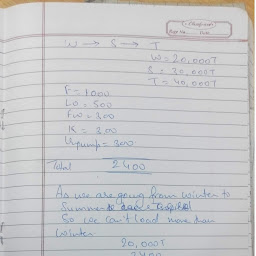 Page No.
Date
W → S → T
W = 20,000T
S = 30,000T
T = 40,000T
F = 1000
LO = 500
FW = 300
K = 300
Upump = 300
Total 2400
As we are going from winter to
Summer &
So we can't load more than
Winter
20,000T
2400